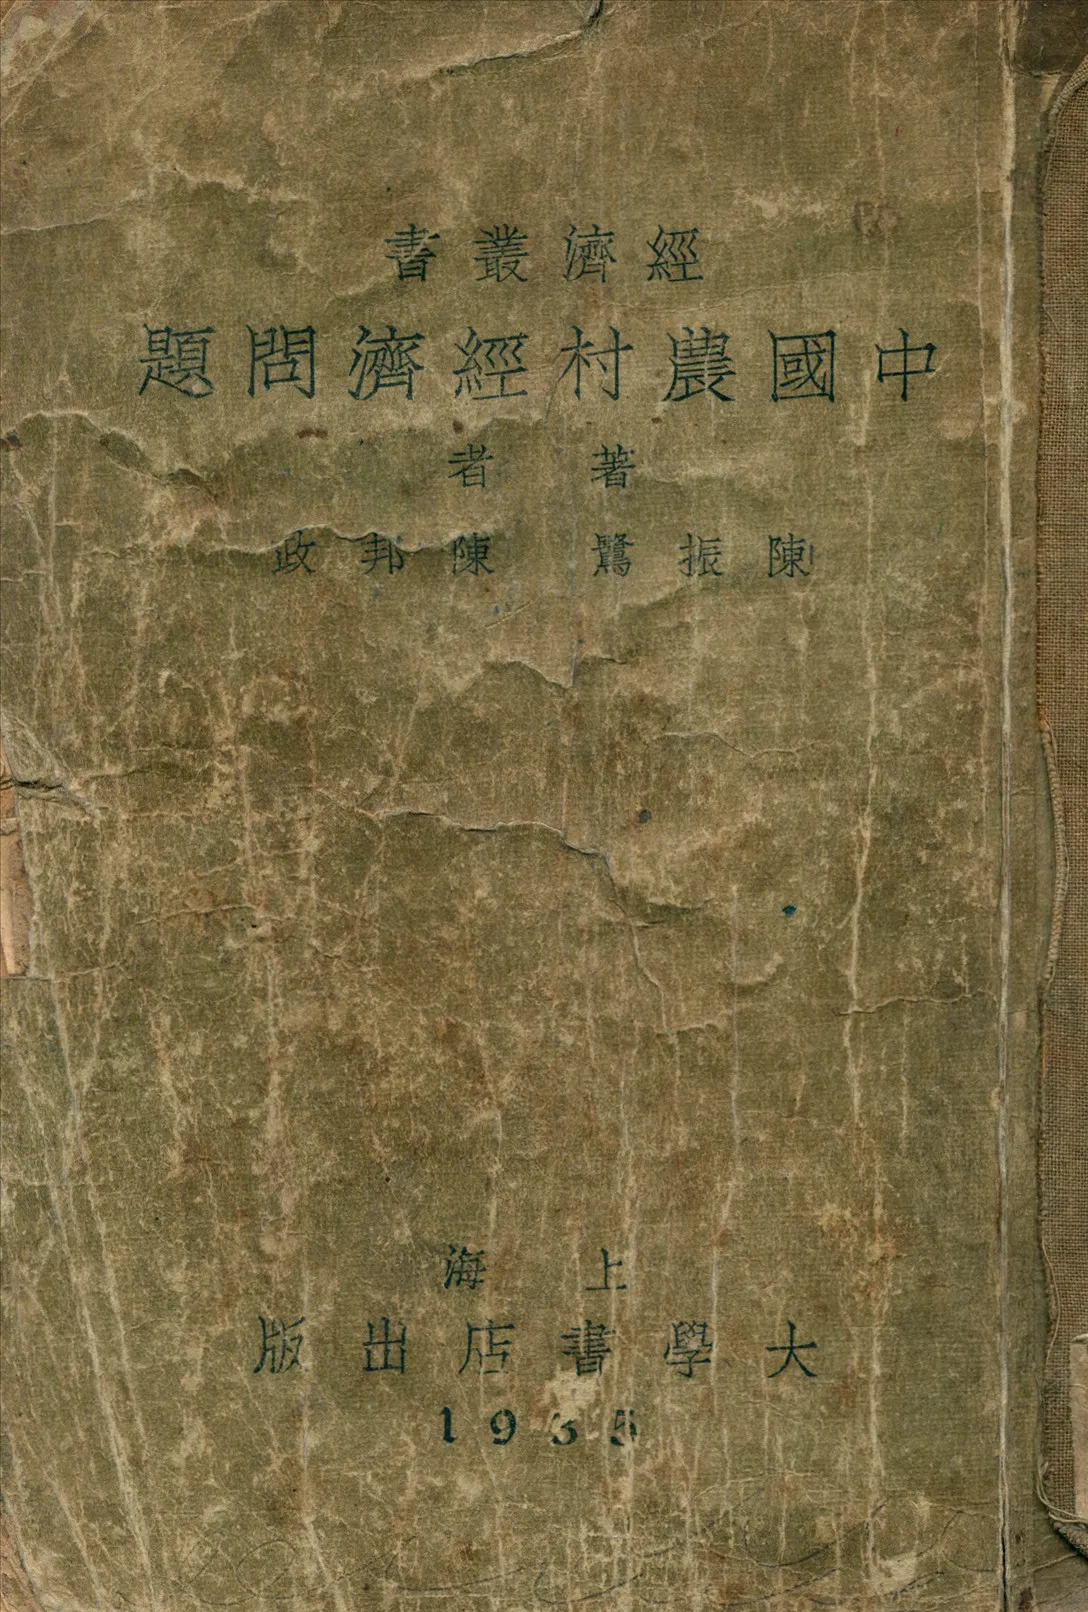 經濟叢書
中國農村經濟問題
著者
陳振鷺 陳邦政
上海
大學書店出版
1935